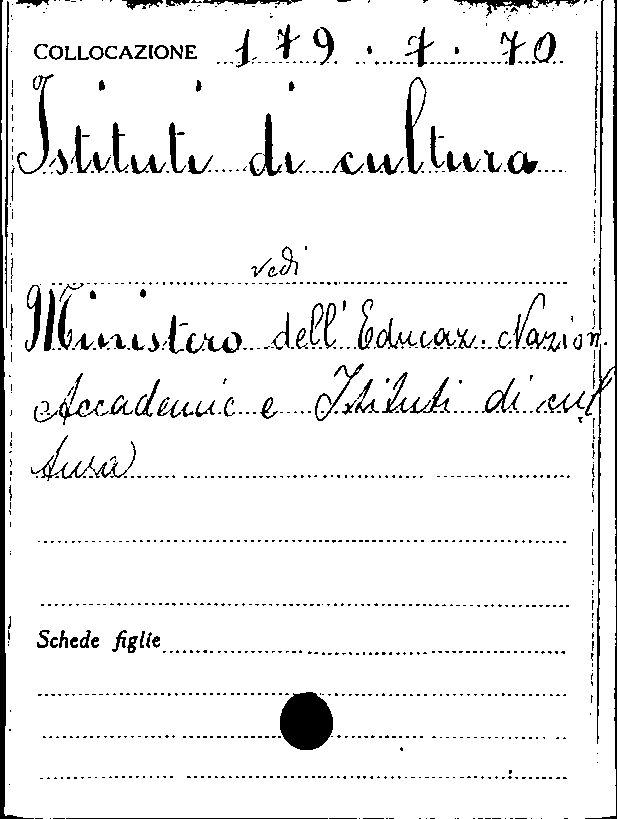 COLLOCAZIONE 179.7.70
Istituti di cultura
vedi
Ministero dell'Educaz. Nazion.
Accademie e Istituti di cul
tura
Schede figlie